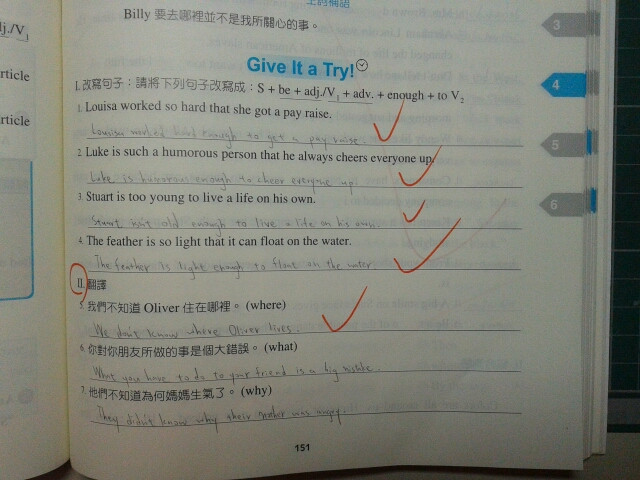 主詞補語
Billy 要去哪裡並不是我所關心的事。
dj./V
Give It a Try!
3
4
5
6
rticle
rticle
I. 改寫句子:請將下列句子改寫成:S + be + adj./V1 + adv. + enough + to V2
1. Louisa worked so hard that she got a pay raise.
Louisa worked hard enough to get a pay raise.
2. Luke is such a humorous person that he always cheers everyone up.
Luke is humorous enough to cheer everyone up.
3. Stuart is too young to live a life on his own.
Stuart isn't old enough to live a life on his own.
4. The feather is so light that it can float on the water.
The feather is light enough to float on the water
II. 翻譯
5. 我們不知道 Oliver 住在哪裡。(where)
We don't know where Oliver lives.
6. 你對你朋友所做的事是個大錯誤。(what)
What you have to do to your friend is a big
7. 他們不知道為何媽媽生氣了。(why)
They didn't know why their mother was angry.
151